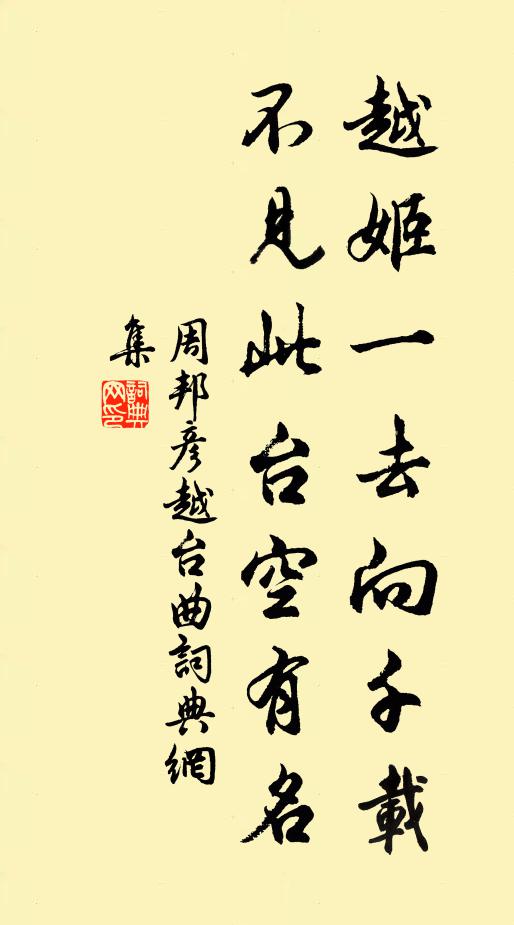 越姬一去向千載
不見此台空有名
周邦彦越台曲詞典網
集
詞典
网印